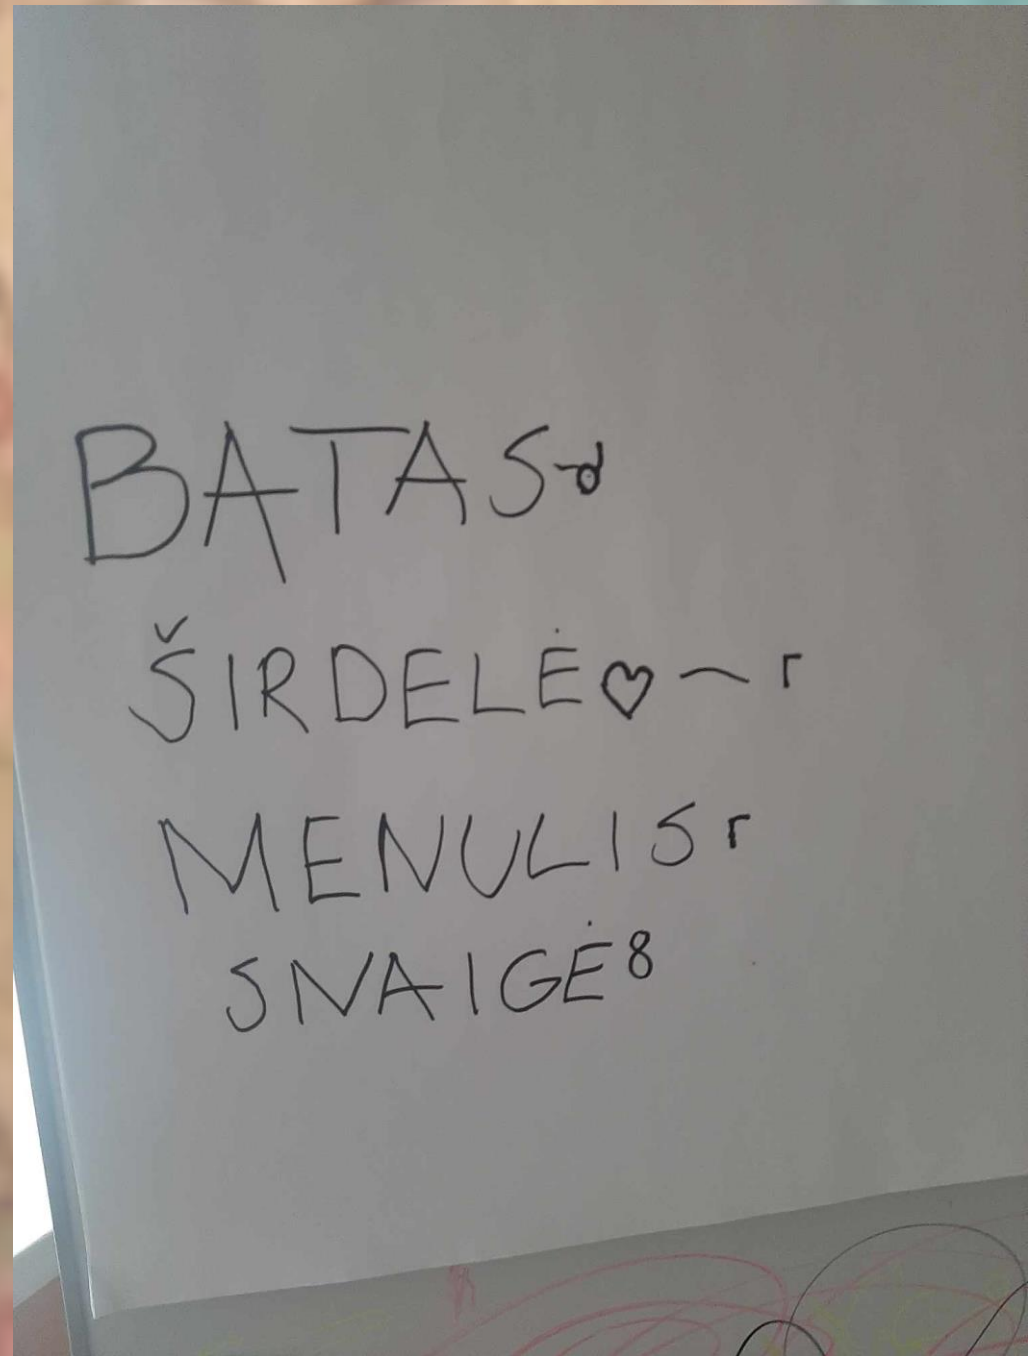 BATAS
ŠIRDELĖ ♡ ~ r
MENULIS r
SNAIGĖ 8